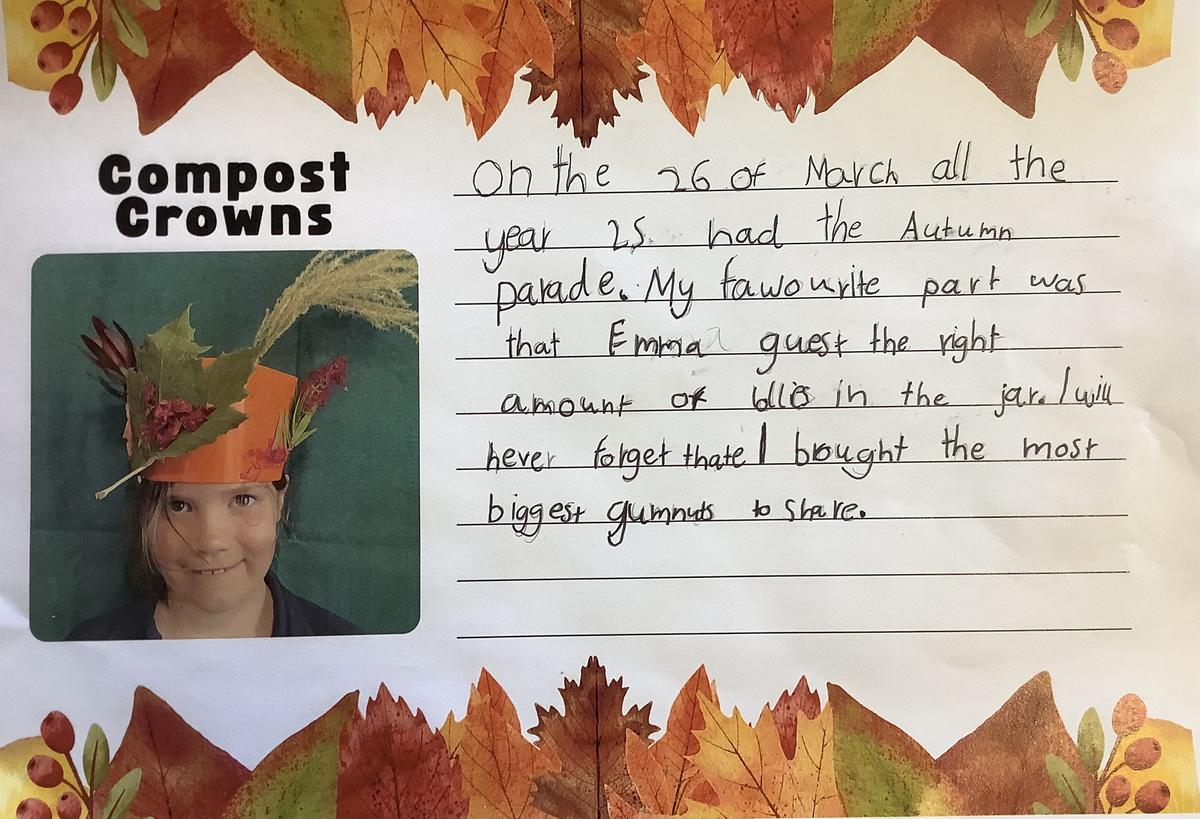 Compost
Crowns
On the 26 of March all the
year 2S. had the Autumn
parade. My fawourite part was
that Emma guest the right
amount of in the jar. I will
never forget thate I brought the most
biggest gumnuts to share.